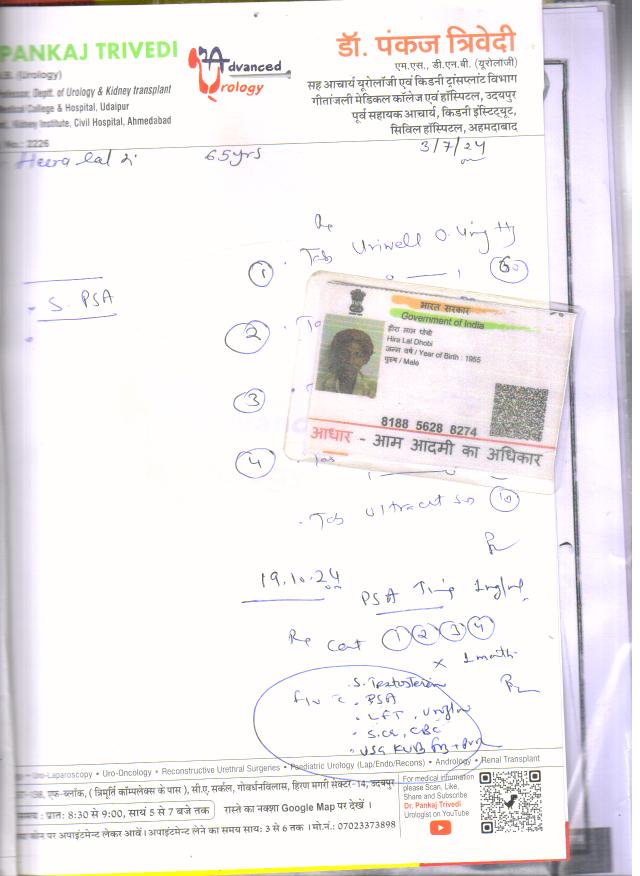 PANKAJ TRIVEDI
(Urology)
Deptt. of Urology & Kidney transplant
College & Hospital, Udaipur
Institute, Civil Hospital, Ahmedabad
2226
Advanced
Urology
डॉ. पंकज त्रिवेदी
एम.एस., डी.एन.बी. (यूरोलॉजी)
सह आचार्य यूरोलॉजी एवं किडनी ट्रांसप्लांट विभाग
गीतांजली मेडिकल कॉलेज एवं हॉस्पिटल, उदयपुर
पूर्व सहायक आचार्य, किडनी इंस्टिट्यूट,
सिविल हॉस्पिटल, अहमदाबाद
Heera lal
65yrs
3/7/24
1 Tab Uriwell
S. PSA
2
3
4
भारत सरकार
Government of India
हीरा लाल धोबी
Hira Lal Dhobi
जन्म वर्ष / Year of Birth : 1955
पुरुष / Male
8188 5628 8274
आधार - आम आदमी का अधिकार
Tab Ultracet 10
19.10.24 PSA
Cont 1 2 3 4
x 1 month
S. Testosteron
PSA
LFT
S.Cr, CBC
USG KUB
Uro-Laparoscopy • Uro-Oncology • Reconstructive Urethral Surgeries • Paediatric Urology (Lap/Endo/Recons) • Andrology • Renal Transplant
एफ-ब्लॉक, ( त्रिमूर्ति कॉम्पलेक्स के पास ) सी.ए. सर्कल, गोवर्धनविलास, हिरण मगरी सेक्टर-14, उदयपुर
प्रातः 8:30 से 9:00, सायं 5 से 7 बजे तक रास्ते का नक्शा Google Map पर देखें ।
फोन पर अपाइंटमेन्ट लेकर आवें । अपाइंटमेन्ट लेने का समय सायः 3 से 6 तक । मो.नं.: 07023373898
For medical information
please Scan, Like,
Share and Subscribe
Dr. Pankaj Trivedi
Urologist on YouTube